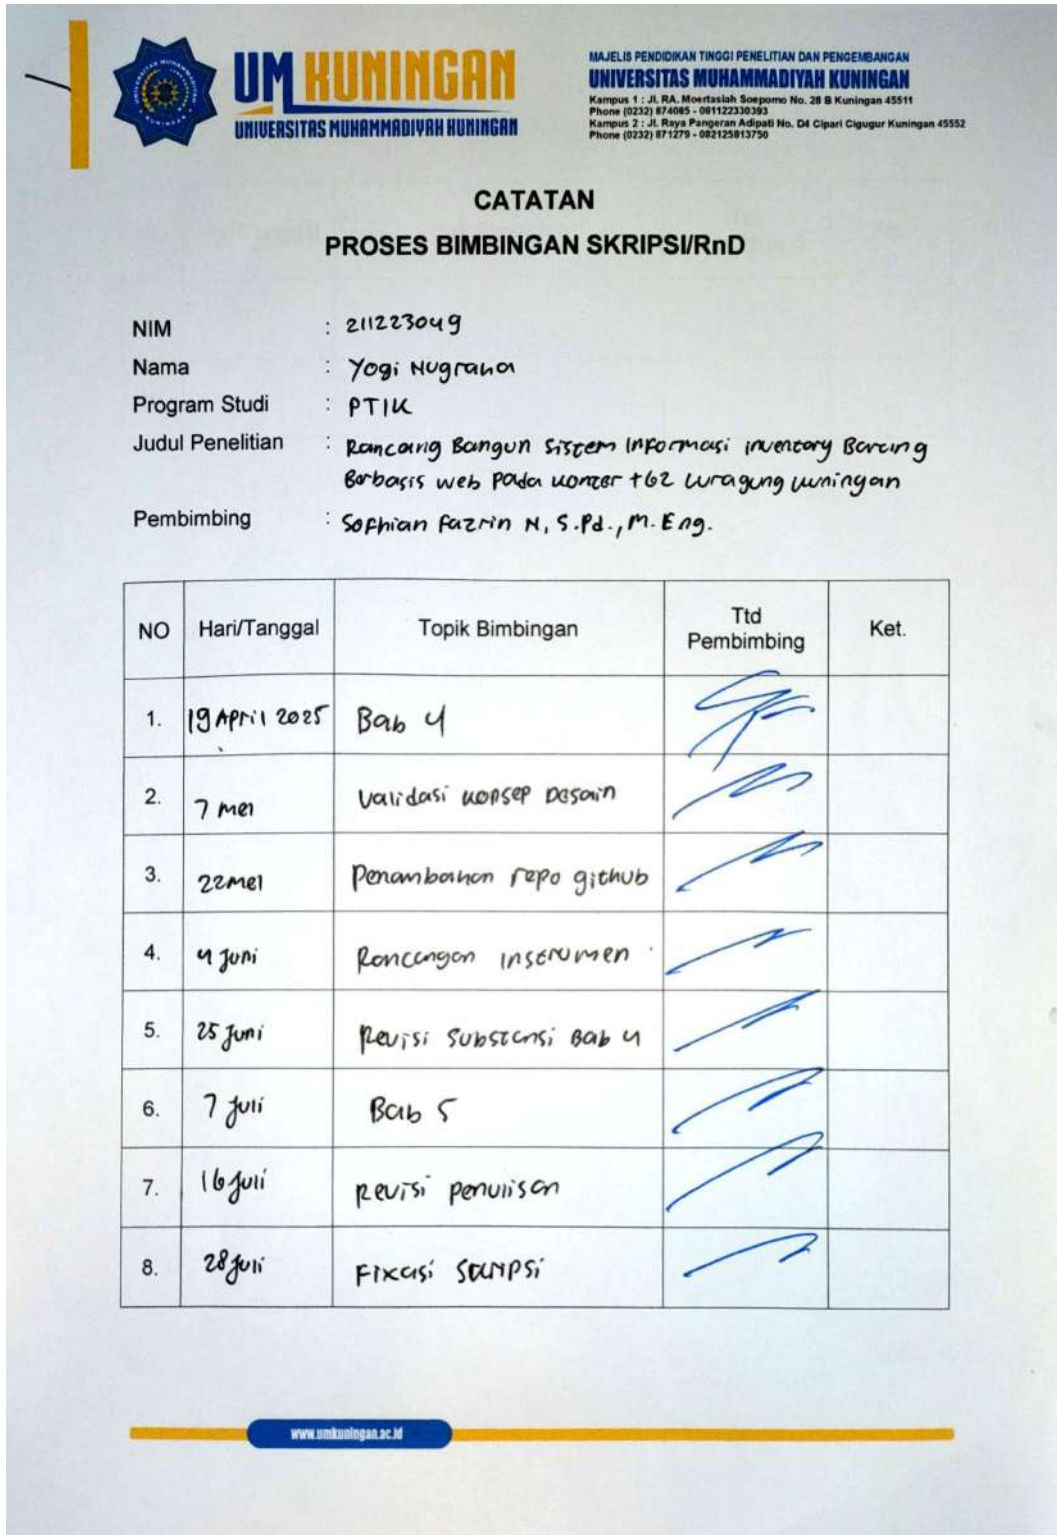 UM KUNINGAN
UNIVERSITAS MUHAMMADIYAH KUNINGAN
MAJELIS PENDIDIKAN TINGGI PENELITIAN DAN PENGEMBANGAN
UNIVERSITAS MUHAMMADIYAH KUNINGAN
Kampus 1 : Jl. RA. Moertasiah Soepomo No. 28 B Kuningan 45511
Phone (0232) 874085 - 081122330393
Kampus 2 : Jl. Raya Pangeran Adipati No. D4 Cipari Cigugur Kuningan 45552
Phone (0232) 871279 - 082125813750
CATATAN
PROSES BIMBINGAN SKRIPSI/RnD
NIM : 211223049
Nama : Yogi Nugraha
Program Studi : PTIK
Judul Penelitian : Rancang Bangun Sistem Informasi inventory Barang
Berbasis web pada konter +62 Luragung kuningan
Pembimbing : Sofhian Fazrin N, S.Pd., M.Eng.
NO Hari/Tanggal Topik Bimbingan Ttd Pembimbing Ket.
1. 19 April 2025 Bab 4
2. 7 mei Validasi konsep Desain
3. 22 mei Penambahan repo github
4. 4 Juni Rancangan instrumen
5. 25 Juni Revisi Substansi Bab 4
6. 7 Juli Bab 5
7. 16 Juli Revisi penulisan
8. 28 Juli Fixasi skripsi
www.umkuningan.ac.id